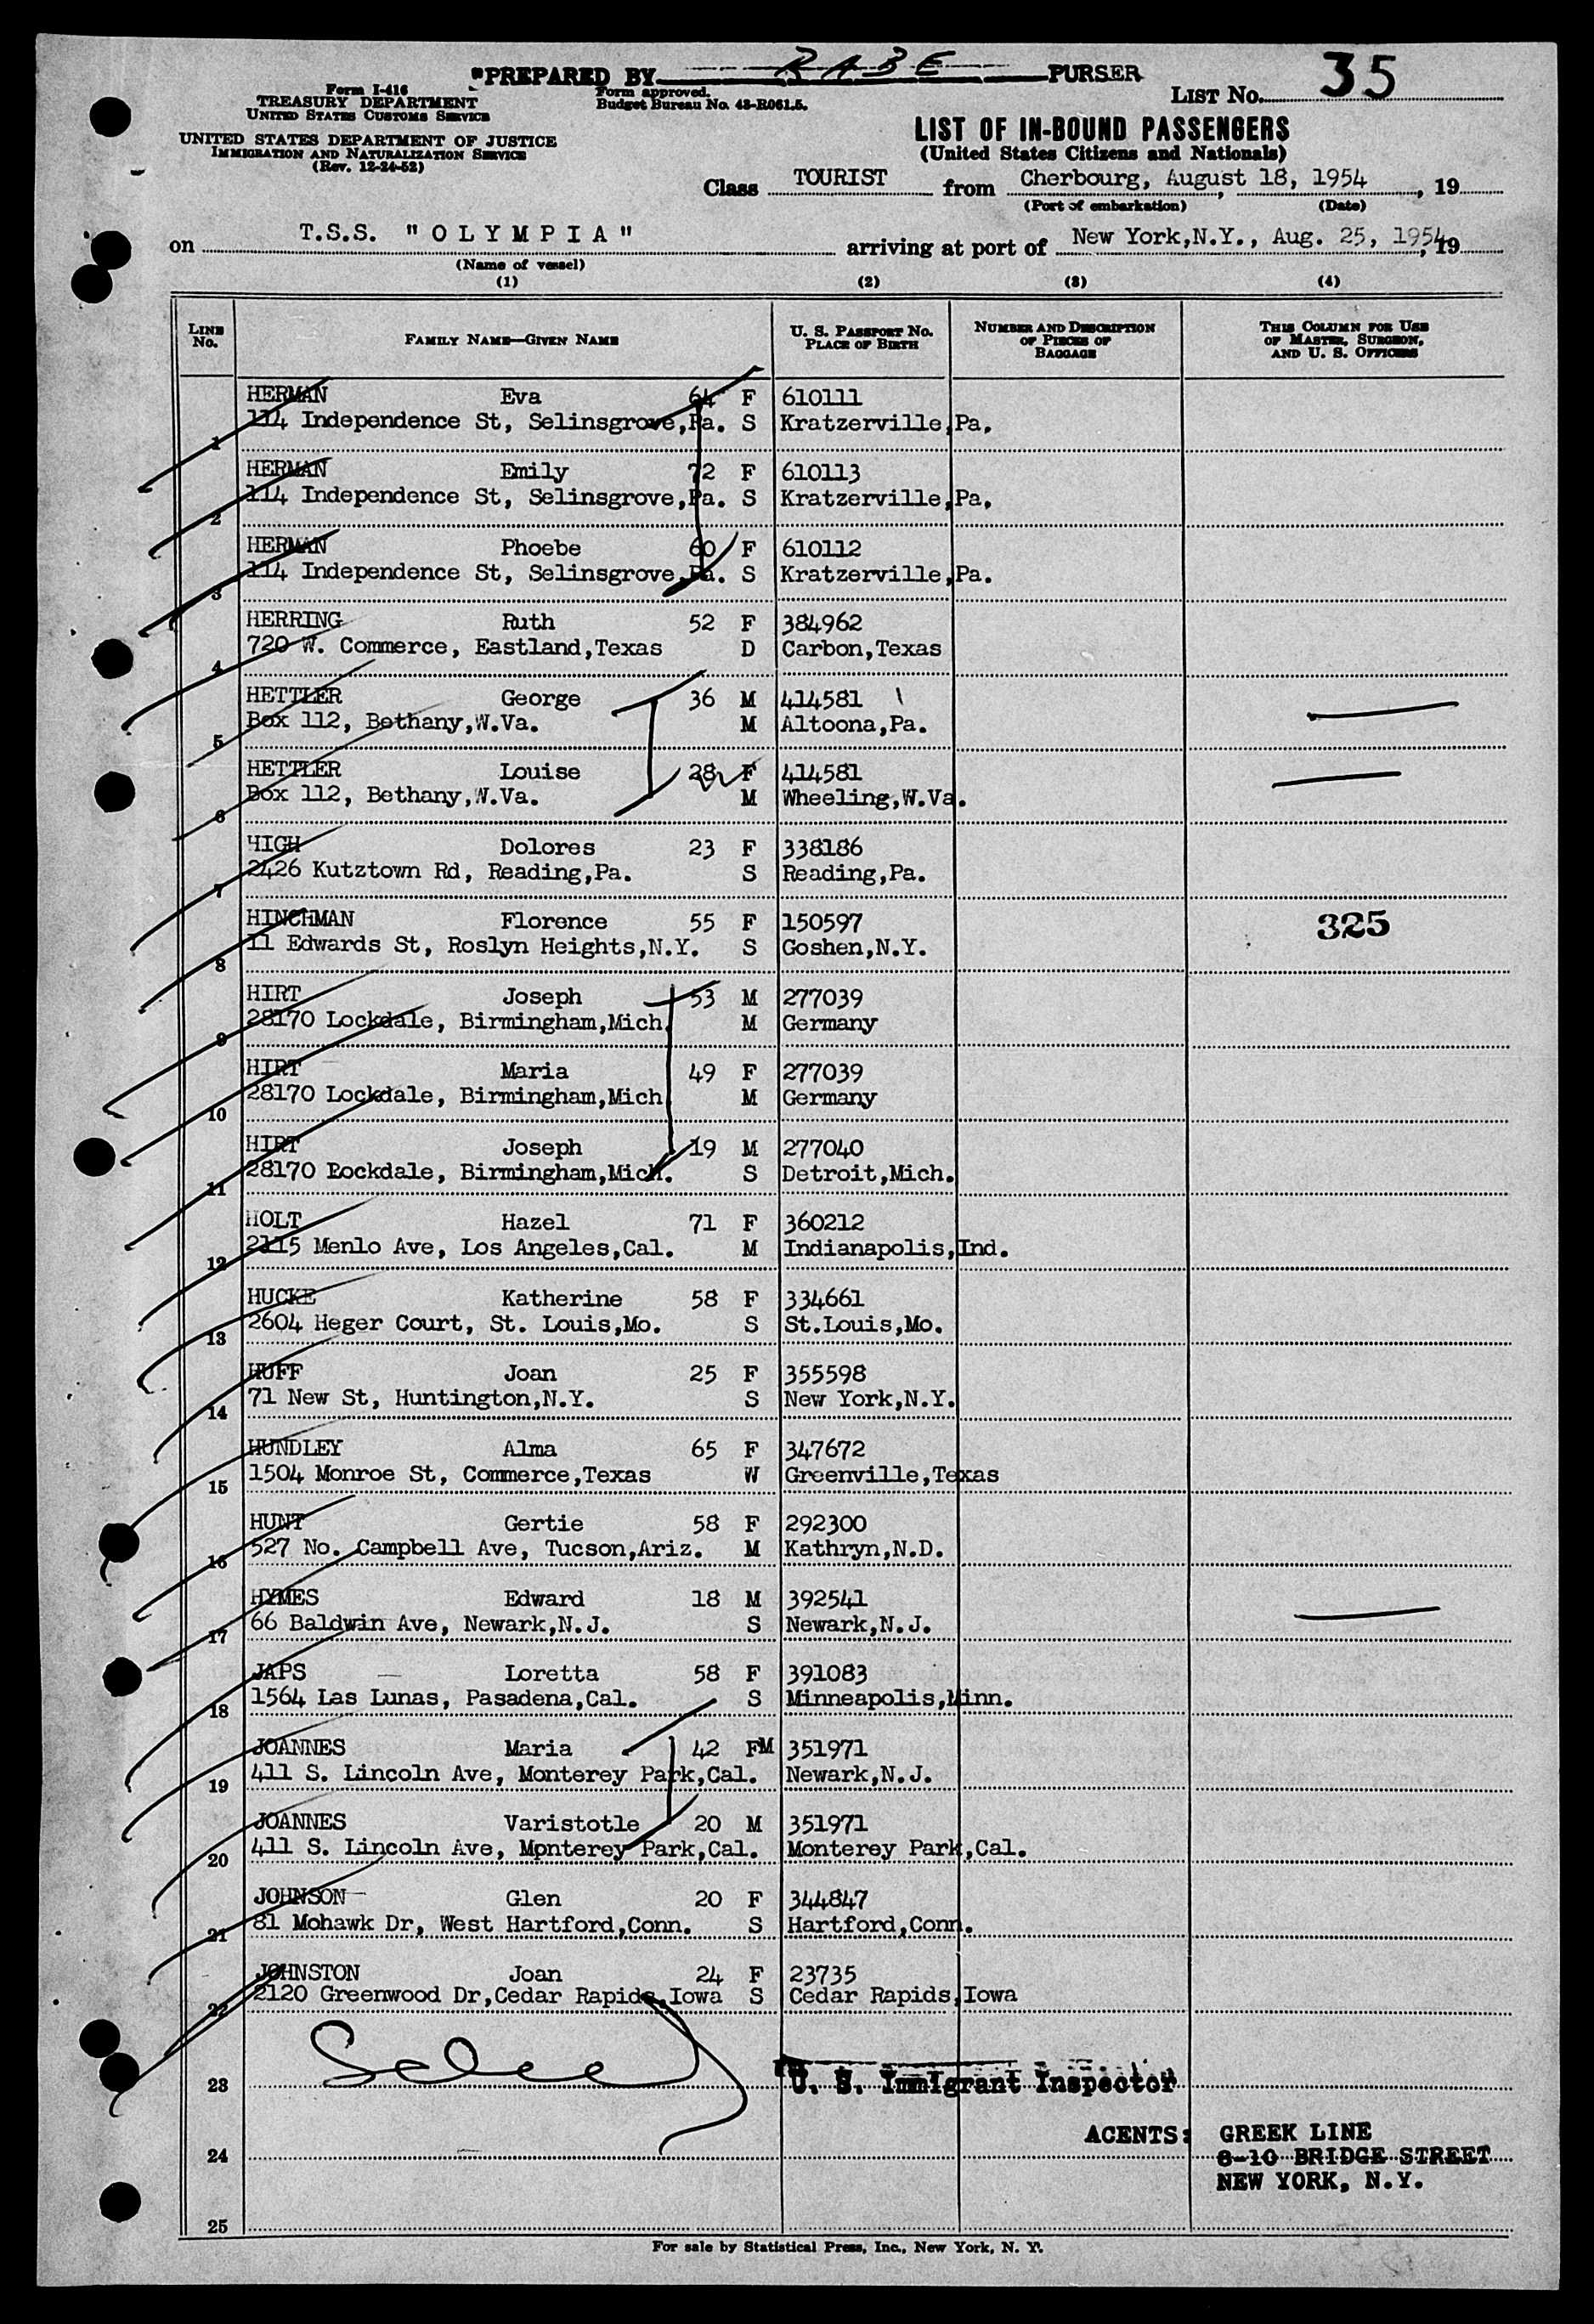 "PREPARED BY RABE PURSER
Form I-416
TREASURY DEPARTMENT
UNITED STATES CUSTOMS SERVICE
Form approved.
Budget Bureau No. 43-R061.5.
LIST No. 35
UNITED STATES DEPARTMENT OF JUSTICE
IMMIGRATION AND NATURALIZATION SERVICE
(Rev. 12-24-52)
LIST OF IN-BOUND PASSENGERS
(United States Citizens and Nationals)
Class TOURIST from Cherbourg, August 18, 1954, 19
(Port of embarkation) (Date)
on T.S.S. "OLYMPIA" arriving at port of New York,N.Y., Aug. 25, 1954, 19
(Name of vessel)
(1) (2) (3) (4)
LINE No. FAMILY NAME—GIVEN NAME U. S. PASSPORT NO. PLACE OF BIRTH NUMBER AND DESCRIPTION OF PIECES OF BAGGAGE THIS COLUMN FOR USE OF MASTER, SURGEON, AND U. S. OFFICERS
HERMAN Eva 64 F 610111
1 114 Independence St, Selinsgrove,Pa. S Kratzerville,Pa.
HERMAN Emily 72 F 610113
2 114 Independence St, Selinsgrove,Pa. S Kratzerville,Pa.
HERMAN Phoebe 60 F 610112
3 114 Independence St, Selinsgrove,Pa. S Kratzerville,Pa.
HERRING Ruth 52 F 384962
4 720 W. Commerce, Eastland,Texas D Carbon,Texas
HETTLER George 36 M 414581
5 Box 112, Bethany,W.Va. M Altoona,Pa.
HETTLER Louise 28 F 414581
6 Box 112, Bethany,W.Va. M Wheeling,W.Va.
HIGH Dolores 23 F 338186
7 2426 Kutztown Rd, Reading,Pa. S Reading,Pa.
HINCHMAN Florence 55 F 150597 325
8 11 Edwards St, Roslyn Heights,N.Y. S Goshen,N.Y.
HIRT Joseph 53 M 277039
9 28170 Lockdale, Birmingham,Mich. M Germany
HIRT Maria 49 F 277039
10 28170 Lockdale, Birmingham,Mich M Germany
HIRT Joseph 19 M 277040
11 28170 Lockdale, Birmingham,Mich. S Detroit,Mich.
HOLT Hazel 71 F 360212
12 2115 Menlo Ave, Los Angeles,Cal. M Indianapolis,Ind.
HUCKE Katherine 58 F 334661
13 2604 Heger Court, St. Louis,Mo. S St.Louis,Mo.
HUFF Joan 25 F 355598
14 71 New St, Huntington,N.Y. S New York,N.Y.
HUNDLEY Alma 65 F 347672
15 1504 Monroe St, Commerce,Texas W Greenville,Texas
HUNT Gertie 58 F 292300
16 527 No. Campbell Ave, Tucson,Ariz. M Kathryn,N.D.
HYMES Edward 18 M 392541
17 66 Baldwin Ave, Newark,N.J. S Newark,N.J.
JAPS Loretta 58 F 391083
18 1564 Las Lunas, Pasadena,Cal. S Minneapolis,Minn.
JOANNES Maria 42 FM 351971
19 411 S. Lincoln Ave, Monterey Park,Cal. Newark,N.J.
JOANNES Varistotle 20 M 351971
20 411 S. Lincoln Ave, Monterey Park,Cal. Monterey Park,Cal.
JOHNSON Glen 20 F 344847
21 81 Mohawk Dr, West Hartford,Conn. S Hartford,Conn.
JOHNSTON Joan 24 F 23735
22 2120 Greenwood Dr,Cedar Rapids,Iowa S Cedar Rapids,Iowa
23 U. S. Immigrant Inspector
AGENTS: GREEK LINE
24 8-10 BRIDGE STREET
NEW YORK, N.Y.
25
For sale by Statistical Press, Inc., New York, N. Y.